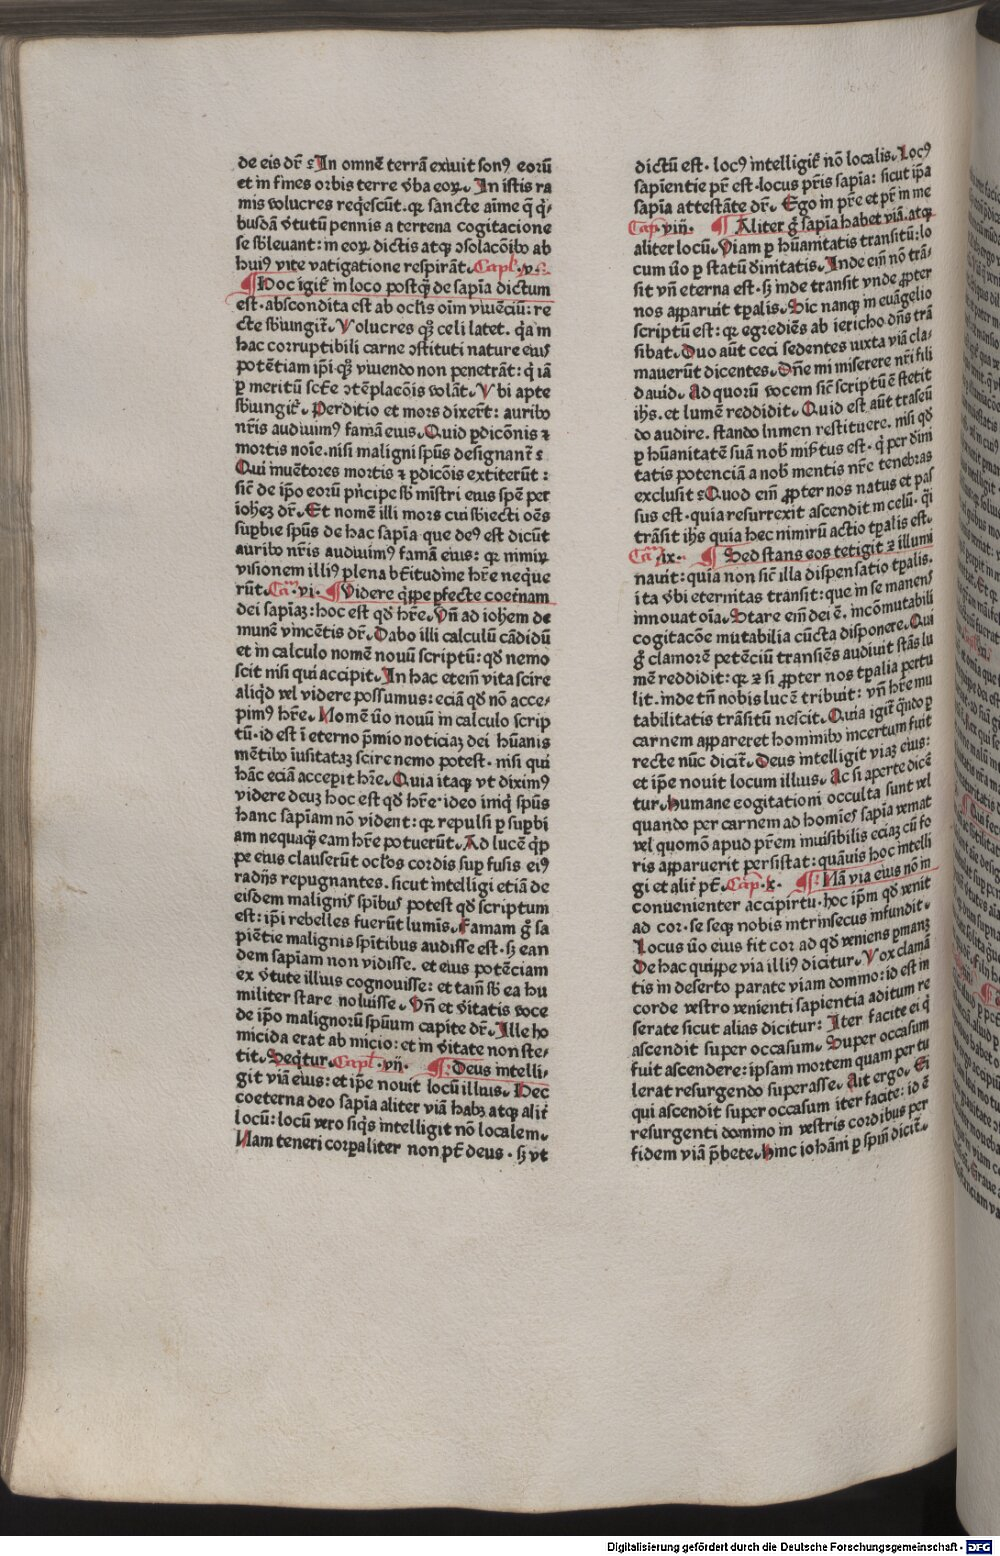 de eis dr̄ : In omnē terrā exiuit sonꝰ eorū
et in fines orbis terre v̄ba eoꝝ. In istis ra
mis volucres reqͥescūt. qꝛ sancte aīme q̄ qͥ⸗
busdā v̄tutū pennis a terrena cogitacione
se sb̄leuant: in eoꝝ dictis atqꝫ ↄsolacōibꝰ ab
huiꝰ vite vatigatione respirāt. Capl̓ ·v·
¶ Hoc igit̄ in loco postqͣꝫ de sapīa dictum
est. abscondita est ab ocl̓is oīm viuēciū: re
cte sb̄iungit̄. Volucres qꝫ celi latet. qͥa in
hac corruptibili carne ↄstituti nature eiꝰ
potētiam ip̄i qꝫ viuendo non penetrāt: qͥ iā
ꝑ meritū sctē ↄtēplacōis volāt. Vbi apte
sb̄iungit̄. Perditio et mors dixert̄: auribꝰ
nr̄is audiuimꝰ famā eius. Quid ꝑdicōnis ⁊
mortis noīe. nisi maligni spūs designant̄ :
Qui inuētores mortis ⁊ ꝑdicōis extiterūt :
sic̄ de ip̄o eorū pͥncipe sb̄ mīstri eius spē per
iohēꝫ dr̄. Et nomē illi mors cui sb̄iecti oēs
suꝑbie spūs de hac sapīa que deꝰ est dicūt
auribꝰ nr̄is audiuimꝰ famā eius: qꝛ nimiꝝ
visionem illiꝰ plena btītudine hr̄e neqͥue
rūt. Cam̄ ·vi· ¶ Videre qͥppe ꝑfecte coet̄nam
dei sapīaꝫ: hoc est qd̓ hr̄e. Vn̄ ad iohēm de
munē vincētis dr̄. Dabo illi calculū cādidū
et in calculo nomē nouū scriptū: qd̓ nemo
scit nisi qui accipit. In hac etem̄ vita scire
aliqͥd vel videre possumus: eciā qd̓ nō acce⸗
pimꝰ hr̄e. Nomē v̄o nouū in calculo scrip
tū. id est ī eterno p̄mio noticiaꝫ dei hūanis
mētibꝰ iusitataꝫ scire nemo potest. nisi qui
hāc eciā acceꝑit hr̄e. Quia itaqꝫ vt diximꝰ
videre deuꝫ hoc est qd̓ hr̄e. ideo iniqͥ spūs
hanc sapīam nō vident: qꝛ repulsi ꝑ suꝑbi
am nequaqͣꝫ eam hr̄e potuerūt. Ad lucē qͥp
pe eius clauserūt ocl̓os cordis suꝑ fusis eiꝰ
radijs repugnantes. sicut intelligi etiā de
eisdem malignis spibꝰ potest qd̓ scriptum
est: ip̄i rebelles fuerūt lumīs. Famam gͦ sa
piētie malignis sp̄itibus audisse est. sꝫ ean
dem sapīam non vidisse. et eius potēciam
ex v̄tute illius cognouisse: et tam̄ sb̄ ea hu
militer stare noluisse. Vn̄ et v̄itatis voce
de ip̄o malignorū spūum capite dr̄. Ille ho
micida erat ab inicio: et in v̄itate non ste⸗
tit. Seqͥtur. Capl̓ ·vij· ¶ Deus intelli⸗
git viā eius: et ip̄e nouit locū illius. Hec
coeterna deo sapīa aliter viā habꝫ atqꝫ alit̄
locū: locū vero siqͥs intelligit nō localem.
Nam teneri corꝑaliter non pt̄ deus. sꝫ vt
dictū est. locꝰ intelligit̄ nō localis. Locꝰ
sapientie pr̄ est. locus pr̄is sapīa: sicut ip̄a
sapīa attestāte dr̄. Ego in pr̄e et pr̄ in me
Cap̄ ·viij· ¶ Aliter gͦ sapīa habet viā. atqꝫ
aliter locū. Viam ꝑ hūanitatis transitū: lo
cum v̄o ꝑ statū diuinitatis. Inde em̄ nō trā⸗
sit vn̄ eterna est. sꝫ inde transit vnde ꝓpter
nos apparuit tꝑalis. Sic nanqꝫ in euāgelio
scriptū est: qꝛ egrediēs ab iericho dn̄s trā
sibat. Duo aūt ceci sedentes iuxta viā cla⸗
mauerūt dicentes. Dn̄e mi miserere nr̄i fili
dauid. Ad quorū vocem sic̄ scriptū ē stetit
ihs̄. et lumē reddidit. Quid est aūt traseū
do audire. stando lumen restituere. nisi qd̓
ꝑ hūanitatē suā nob̄ miſtus est. qͥ per diui
tatis potenciā a nob̄ mentis nr̄e tenebras
exclusit : Quod em̄ ꝓpter nos natus et pas
sus est. quia resurrexit ascendit in celū. qͣi
trāsit ihs̄ quia hec nimirū actio tꝑalis est.
Cam̄ ·ix· ¶ Sed stans eos tetigit ⁊ illumi
nauit: quia non sic̄ illa dispensatio tꝑalis.
ita v̄bi eternitas transit: que in se manens
innouat oīa. Stare em̄ dei ē. incōmutabili
cogitacōe mutabilia cūcta disponere. Qui
gͦ clamorē petēciū transiēs audiuit stās lu
mē reddidit: qꝛ ⁊ si ꝓpter nos tꝑalia pertu
lit. inde tn̄ nobis lucē tribuit: vn̄ hr̄e mu
tabilitatis trāsitū nescit. Quia igit̄ qͣndo ꝑ
carnem appareret hominibꝰ incertum fuit
recte nūc dicit̄. Deus intelligit viaꝫ eius:
et ip̄e nouit locum illius. Ac si aperte dicē
tur. Humane cogitationi occulta sunt vel
quando per carnem ad homīes sapīa veniat
vel quomō apud pr̄em inuisibilis eciaꝫ cū fo
ris apparuerit persistat: quāuis hoc intelli
gi et alit̄ pt̄. Cap̄ ·x· ¶ Nā via eius nō in
conuenienter accipirtu. hoc ip̄m qd̓ venit
ad cor. se seqꝫ nobis intrinsecus infundit.
Locus v̄o eius fit cor ad qd̓ veniens ꝑmanꝫ
De hac quippe via illiꝰ dicitur. Vox clamā
tis in deserto parate viam domino: id est in
corde vestro venienti sapientia aditum re
serate sicut alias dicitur: Iter facite ei qͥ
ascendit super occasum. Super occasum
fuit ascendere: ipsam mortem quam per tu
lerat resurgendo superasse. Ait ergo. Ei
qui ascendit super occasum iter facite: id ē
resurgenti domino in vestris cordibus per
fidem viā p̄bete. Hinc iohāni ꝑ spm̄ dicit̄.
Digitalisierung gefördert durch die Deutsche Forschungsgemeinschaft - DFG